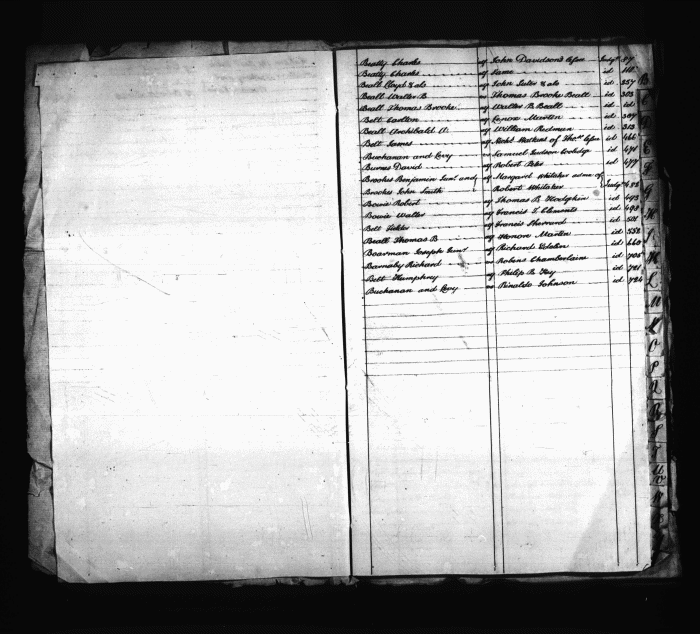 Beatty Charles ag John Davidson's lessee Judgt 57
Beatty Charles ag Same id 110
Beall Lloyd & als ag John Suter & als id 257
Beall Walter B ag Thomas Brooke Beall id 303
Beall Thomas Brooke ag Walter B Beall id id
Belt Carlton ag Lenox Martin id 307
Beall Archibald A. ag William Redman id 313
Belt James ag Nichs Watkins of Thos lessee id 466
Buchanan and Levy vs Samuel Judson Coolidge id 471
Burnes David ag Robert Peter id 477
Brookes Benjamin and ag Margaret Whitaker admx of
Brookes John Smith Robert Whitaker Judgt 488
Bowie Robert ag Thomas B Hodgkin id 493
Bowie Walter ag Francis T Clements id 498
Belt Fielder ag Francis Sherrard id 521
Beall Thomas B ag Honor Martin id 552
Boarman Joseph ag Richard Edelen id 660
Barnaby Richard Robins Chamberlaine id 705
Belt Humphry ag Philip B Key id 721
Buchanan and Levy vs Rinaldo Johnson id 724
B
C
D
E
F
G
H
I
K
L
M
N
O
P
Q
R
S
T